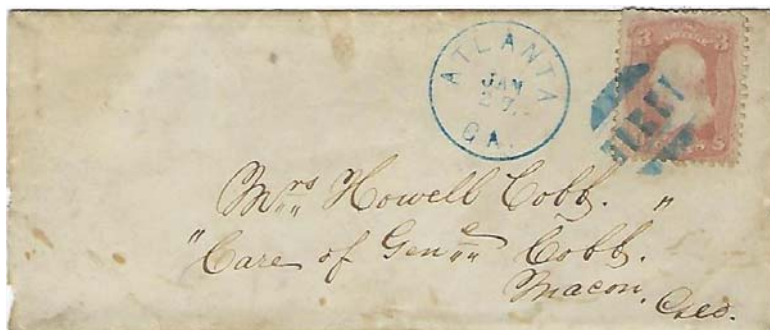 ATLANTA
JAN
27
GA.
3 3
Mrs Howell Cobb. "
"Care of Gene Cobb.
Macon,
Geo.